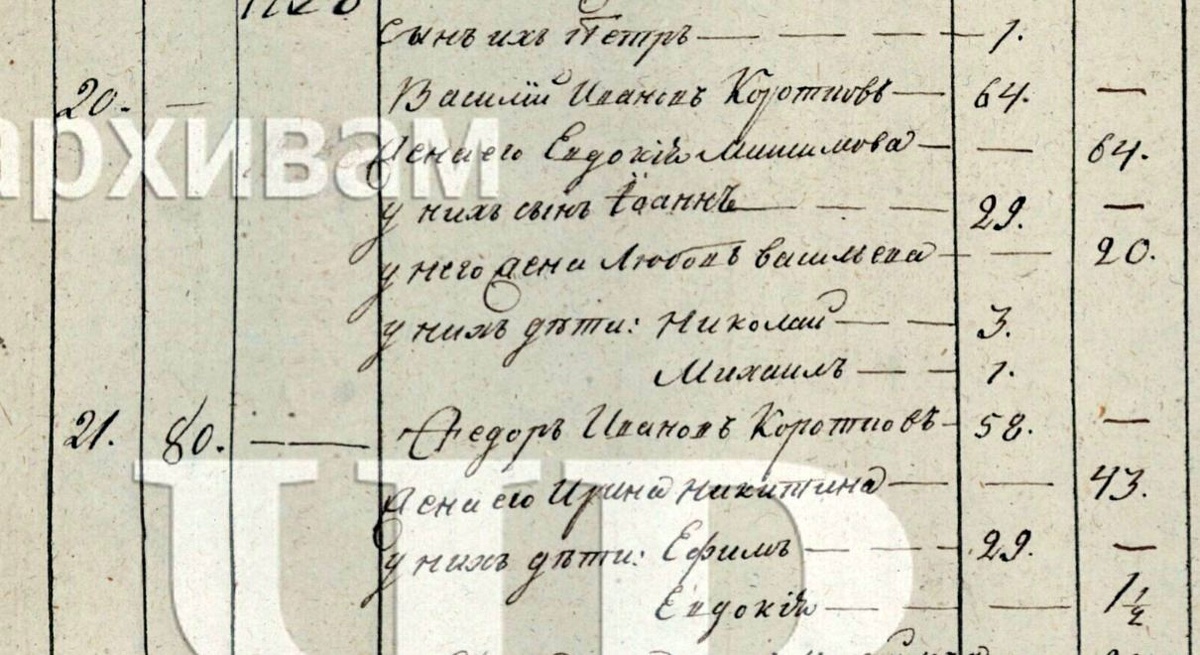 сынъ ихъ Петръ — — — — 1.
20. — Василій Ивановъ Коротковъ — 64. —
жена его Евдокія Максимова — — 64.
у нихъ сынъ Іоаннъ — — — 29. —
у него жена Любовь Васильева — — 20.
у нихъ дѣти: Николай — — 3.
Михаилъ — — 1.
21. 80. — Ѳедоръ Ивановъ Коротковъ — 58. —
жена его Ирина Никитина — — 43.
у нихъ дѣти: Ефимъ — — — 29. —
Евдокія — — — 1 1/2
архивам